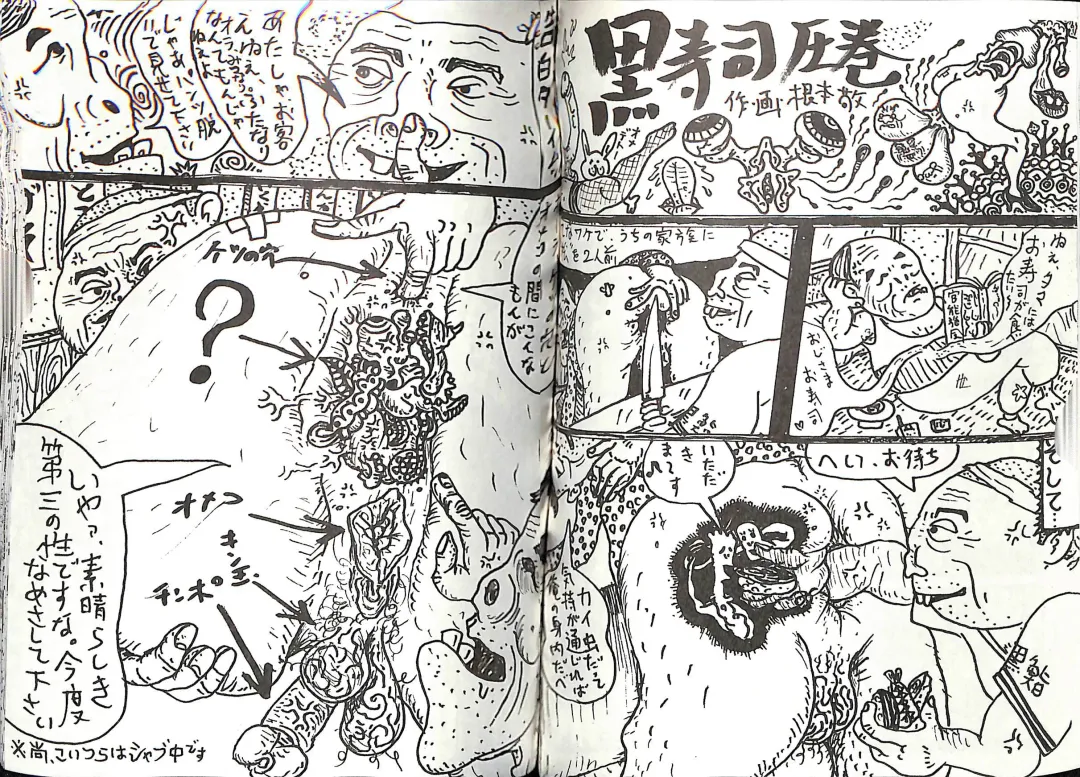 黒寿司 圧巻
作・画 根本敬
ラジオ
ねぇタマには
お寿司が食べ
た
おじさま
お寿司♡
官能雑誌
ワケで、うちの家族に
を2人前
そして、
へい、お待ち
いただ
きま
すてへ
カイ虫だって
気持が通じれば
俺の身内だべ
黒鮨
あたしゃお客
さんねぇ、ふたな
オつみてるぶ
なんてもんじゃ
ねぇよ
じゃあパンツ脱
いで見せて下さい
の間にこんな
もんが
ケツの穴
?
オメコ
キン玉
チンポ
いやァ、素晴らしき
第三の性ですな。今度
なめさして下さい
※尚、こいつらはシャブ中です